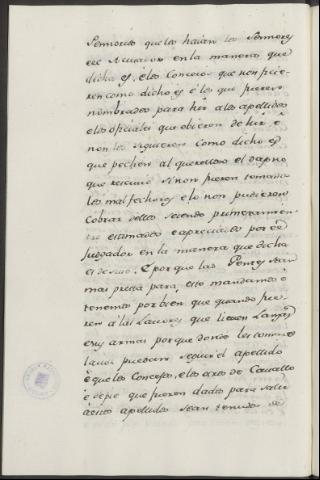 Sennores que les hayan los Sennores
ee Acusaron en la manera que
dicho es, e los Concejos que non ficie-
ren como dicho es é los que fueren
nombrados para hir a los apellidos
e los oficiales que obieren de hir é
non los siguieren como dicho es
que pechen al querelloso el dapno
que rescivió si non fueren tomados
los malfechores e lo non pudieren
Cobrar dellos seiendo primeramen-
te estimado e apreciado por el
Juzgador en la manera que dicha
es desuso. E porque las Gentes sean
mas prestas para esto mandamos é
tenemos por bien que quando fue-
ren á las Lavores que lieven Lanzas
e sus armas porque donde les tomare
la voz puedan seguir el apellido
é que los Concejos, e los otros de Cavallo
é de pie que fueren dados para salir
á estos apellidos sean tenudos de